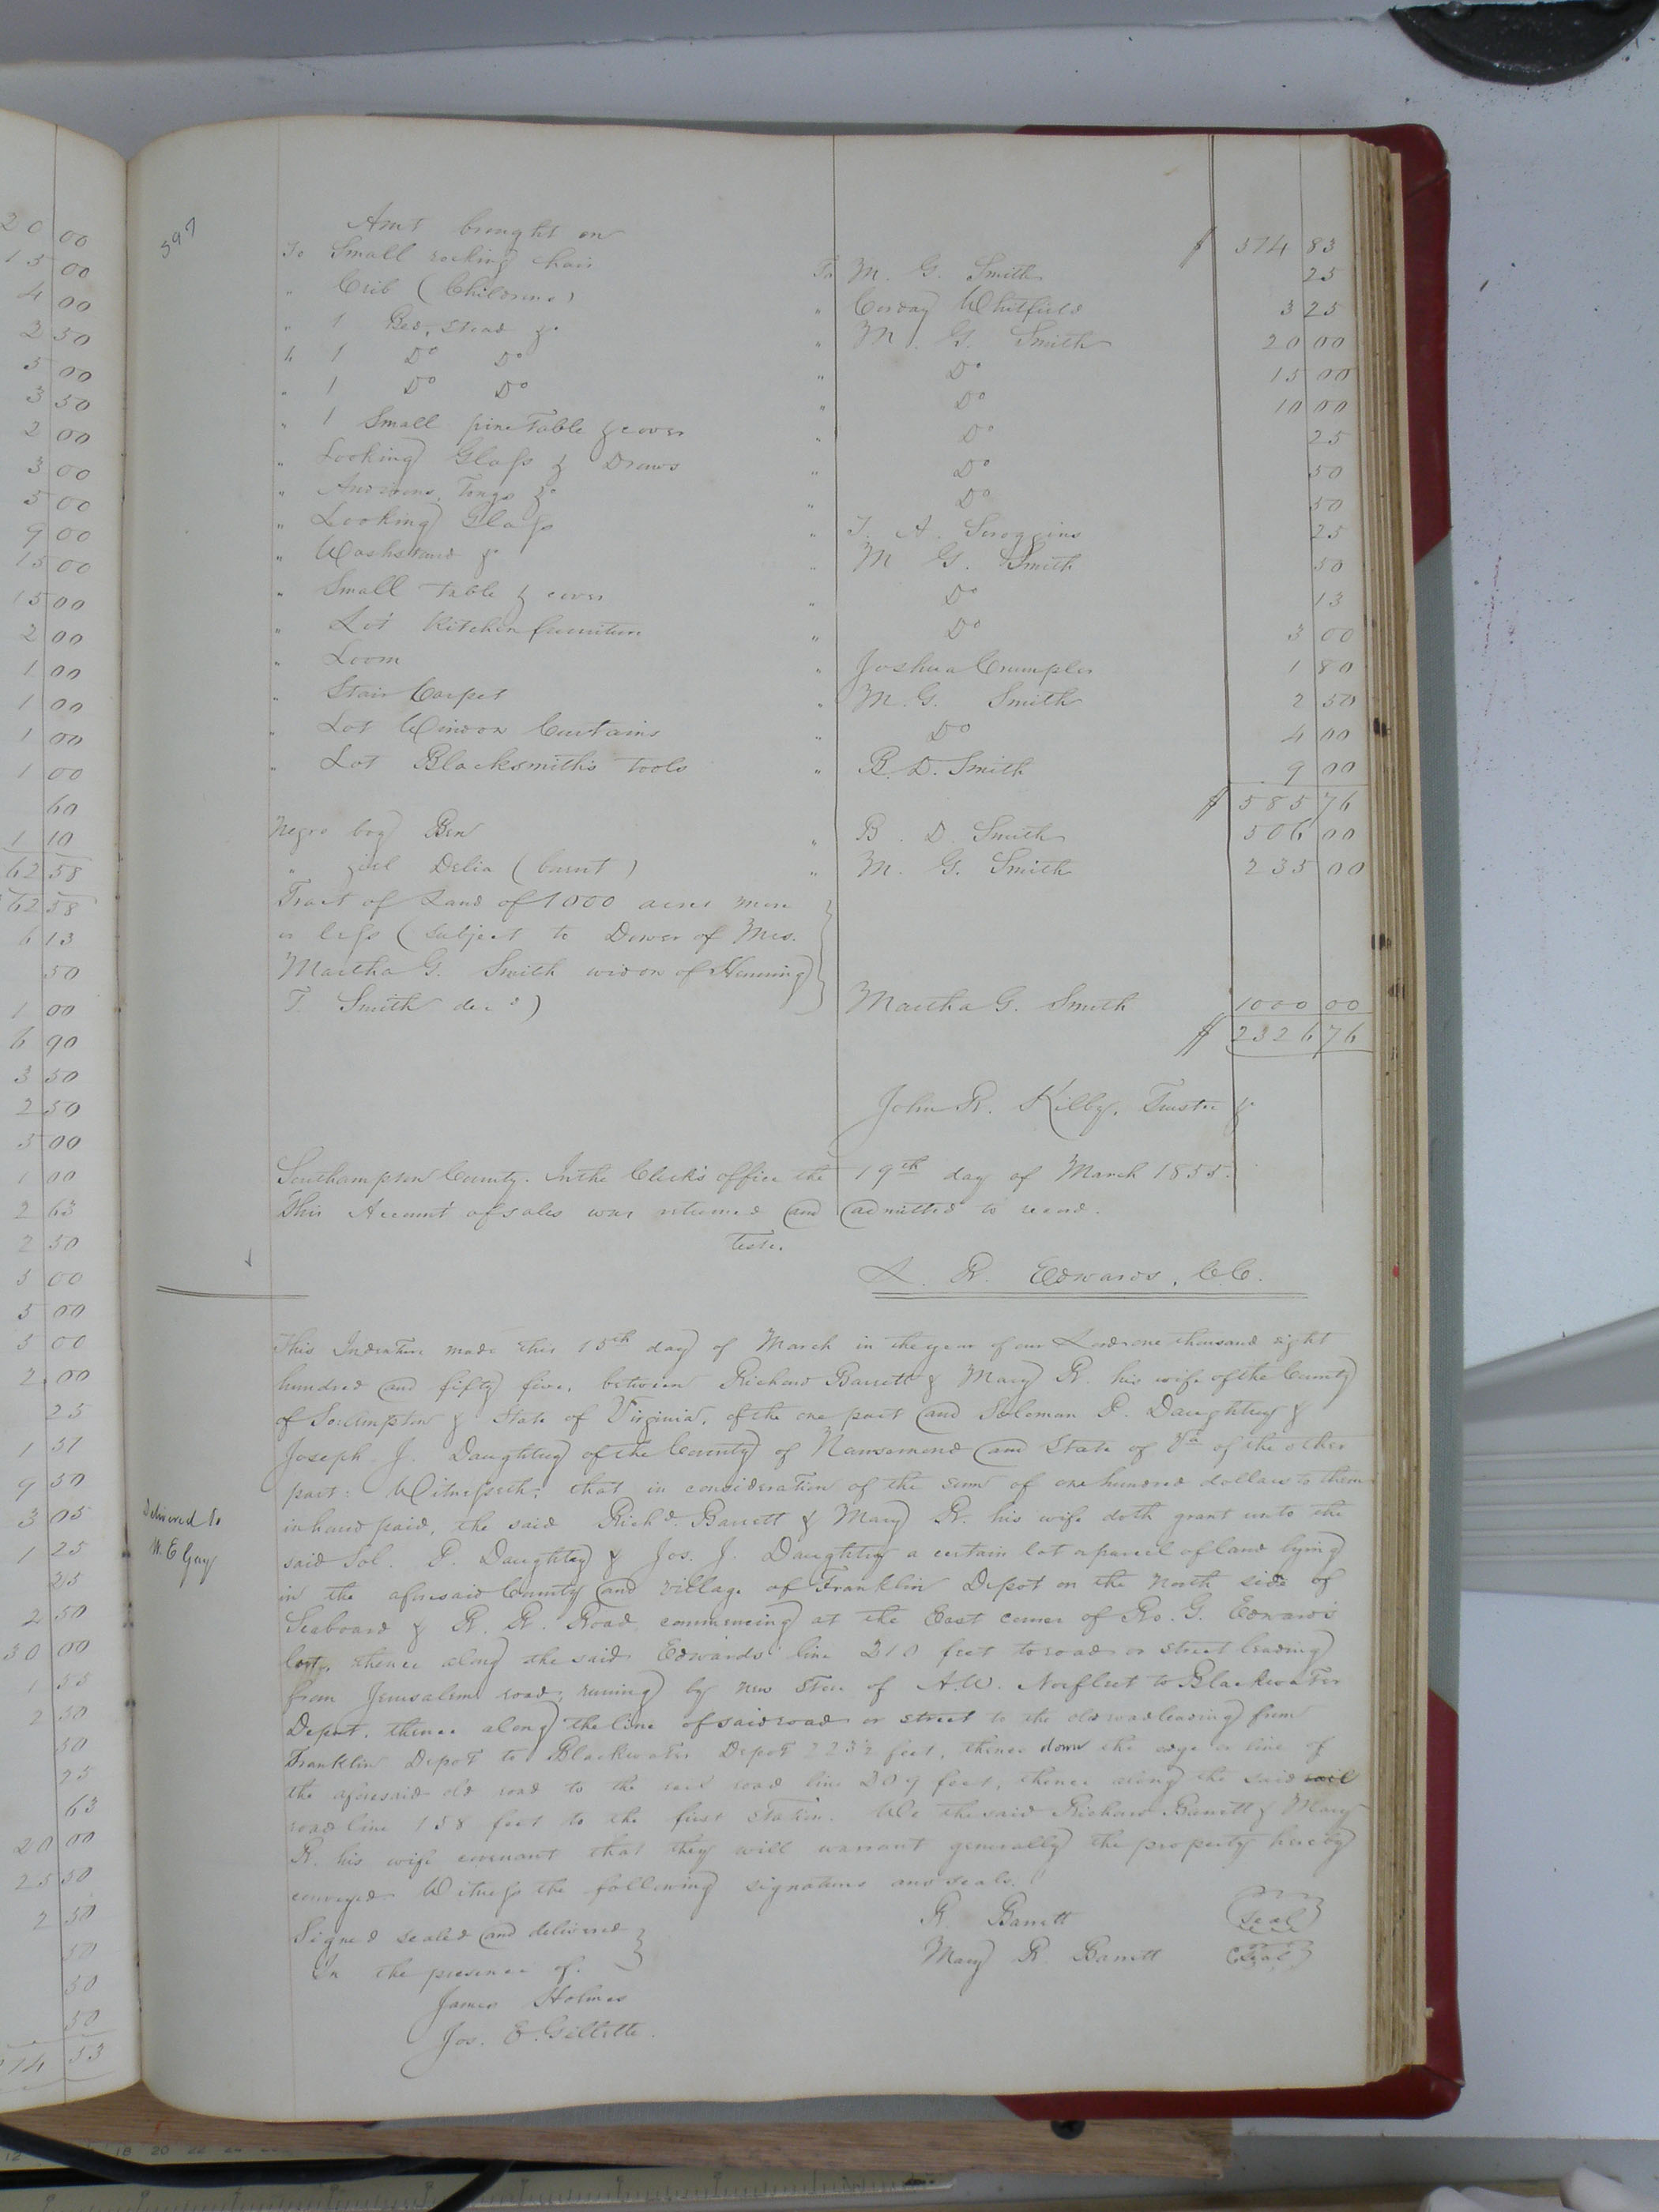 597
Amt brought on $ 514 83
To Small rocking chair To M. G. Smith 25
" Crib (Childrens) " Corday Whitfield 3 25
" 1 Bed, stead &c " M. G. Smith 20 00
" 1 Do Do " Do 15 00
" 1 Do Do " Do 10 00
" 1 Small pine Table & cover " Do 25
" Looking Glass & Draws " Do 50
" Andirons, Tongs &c " Do 50
" Looking Glass " T. A. Scroggins 25
" Washstand &c " M G. Smith 50
" Small Table & cover " Do 13
" Lot Kitchen furniture " Do 3 00
" Loom " Joshua Crumpler 1 80
" Stair Carpet " M. G. Smith 2 50
" Lot Window Curtains " Do 4 00
" Lot Blacksmith's Tools " B. D. Smith 9 00
$ 585 76
Negro boy Ben " B. D. Smith 506 00
" girl Delia (burnt) " M. G. Smith 235 00
Tract of Land of 1000 acres more
or less (subject to Dower of Mrs.
Martha G. Smith widow of
T. Smith decd) Martha G. Smith 1000 00
$ 2326 76
John R. Kilby, Trustee &c
Southampton County. In the Clerk's office the 19th day of March 1855.
This Account of sales was returned and admitted to record.
Teste.
L. R. Edwards, C.C.
This Indenture made this 15th day of March in the year of our Lord one thousand eight
hundred and fifty five, between Richard Barrett & Mary R. his wife of the County
of & State of Virginia, of the one part and Soloman P. Daughtrey &
Joseph J. Daughtrey of the County of Nansemond and State of Va of the other
part: Witnesseth: that in consideration of the sum of one hundred dollars to them
in hand paid, the said Richd. Barrett & Mary R. his wife doth grant unto the
said Sol. P. Daughtrey & Jos. J. Daughtrey a certain lot or parcel of land lying
in the aforesaid County and village of Franklin Depot on the North side of
Seaboard & R. R. Road, commencing at the East corner of Ro. G. Edwards
thence along the said Edwards line 210 feet to road or street leading
from Jerusalem road, running by new Store of A.W. Norfleet to Blackwater
Depot, thence along the line of said road or street to the old road leading from
Franklin Depot to Blackwater Depot 223½ feet, thence down the edge or line of
the aforesaid old road to the rail road line 209 feet, thence along the said rail
road line 158 feet to the first Station. We the said Richard Barrett & Mary
R. his wife covenant that they will warrant generally the property hereby
conveyed. Witness the following signatures and seals.
Signed sealed and delivered R. Barrett (Seal)
In the presence of. Mary R. Barrett (Seal)
James Holmes
Jos. E. Gillette.
Delivered to
W. E. Gay
20 00
15 00
4 00
2 50
5 00
3 50
2 00
3 00
5 00
9 00
15 00
15 00
2 00
1 00
1 00
1 00
1 00
60
1 10
62 58
62 58
6 13
50
1 00
6 90
3 50
2 50
5 00
1 00
2 63
2 50
5 00
5 00
5 00
2.00
25
1 37
9 50
3 05
1 25
25
2 50
30 00
1 55
2 50
50
25
63
20 00
25 50
2 50
50
50
50